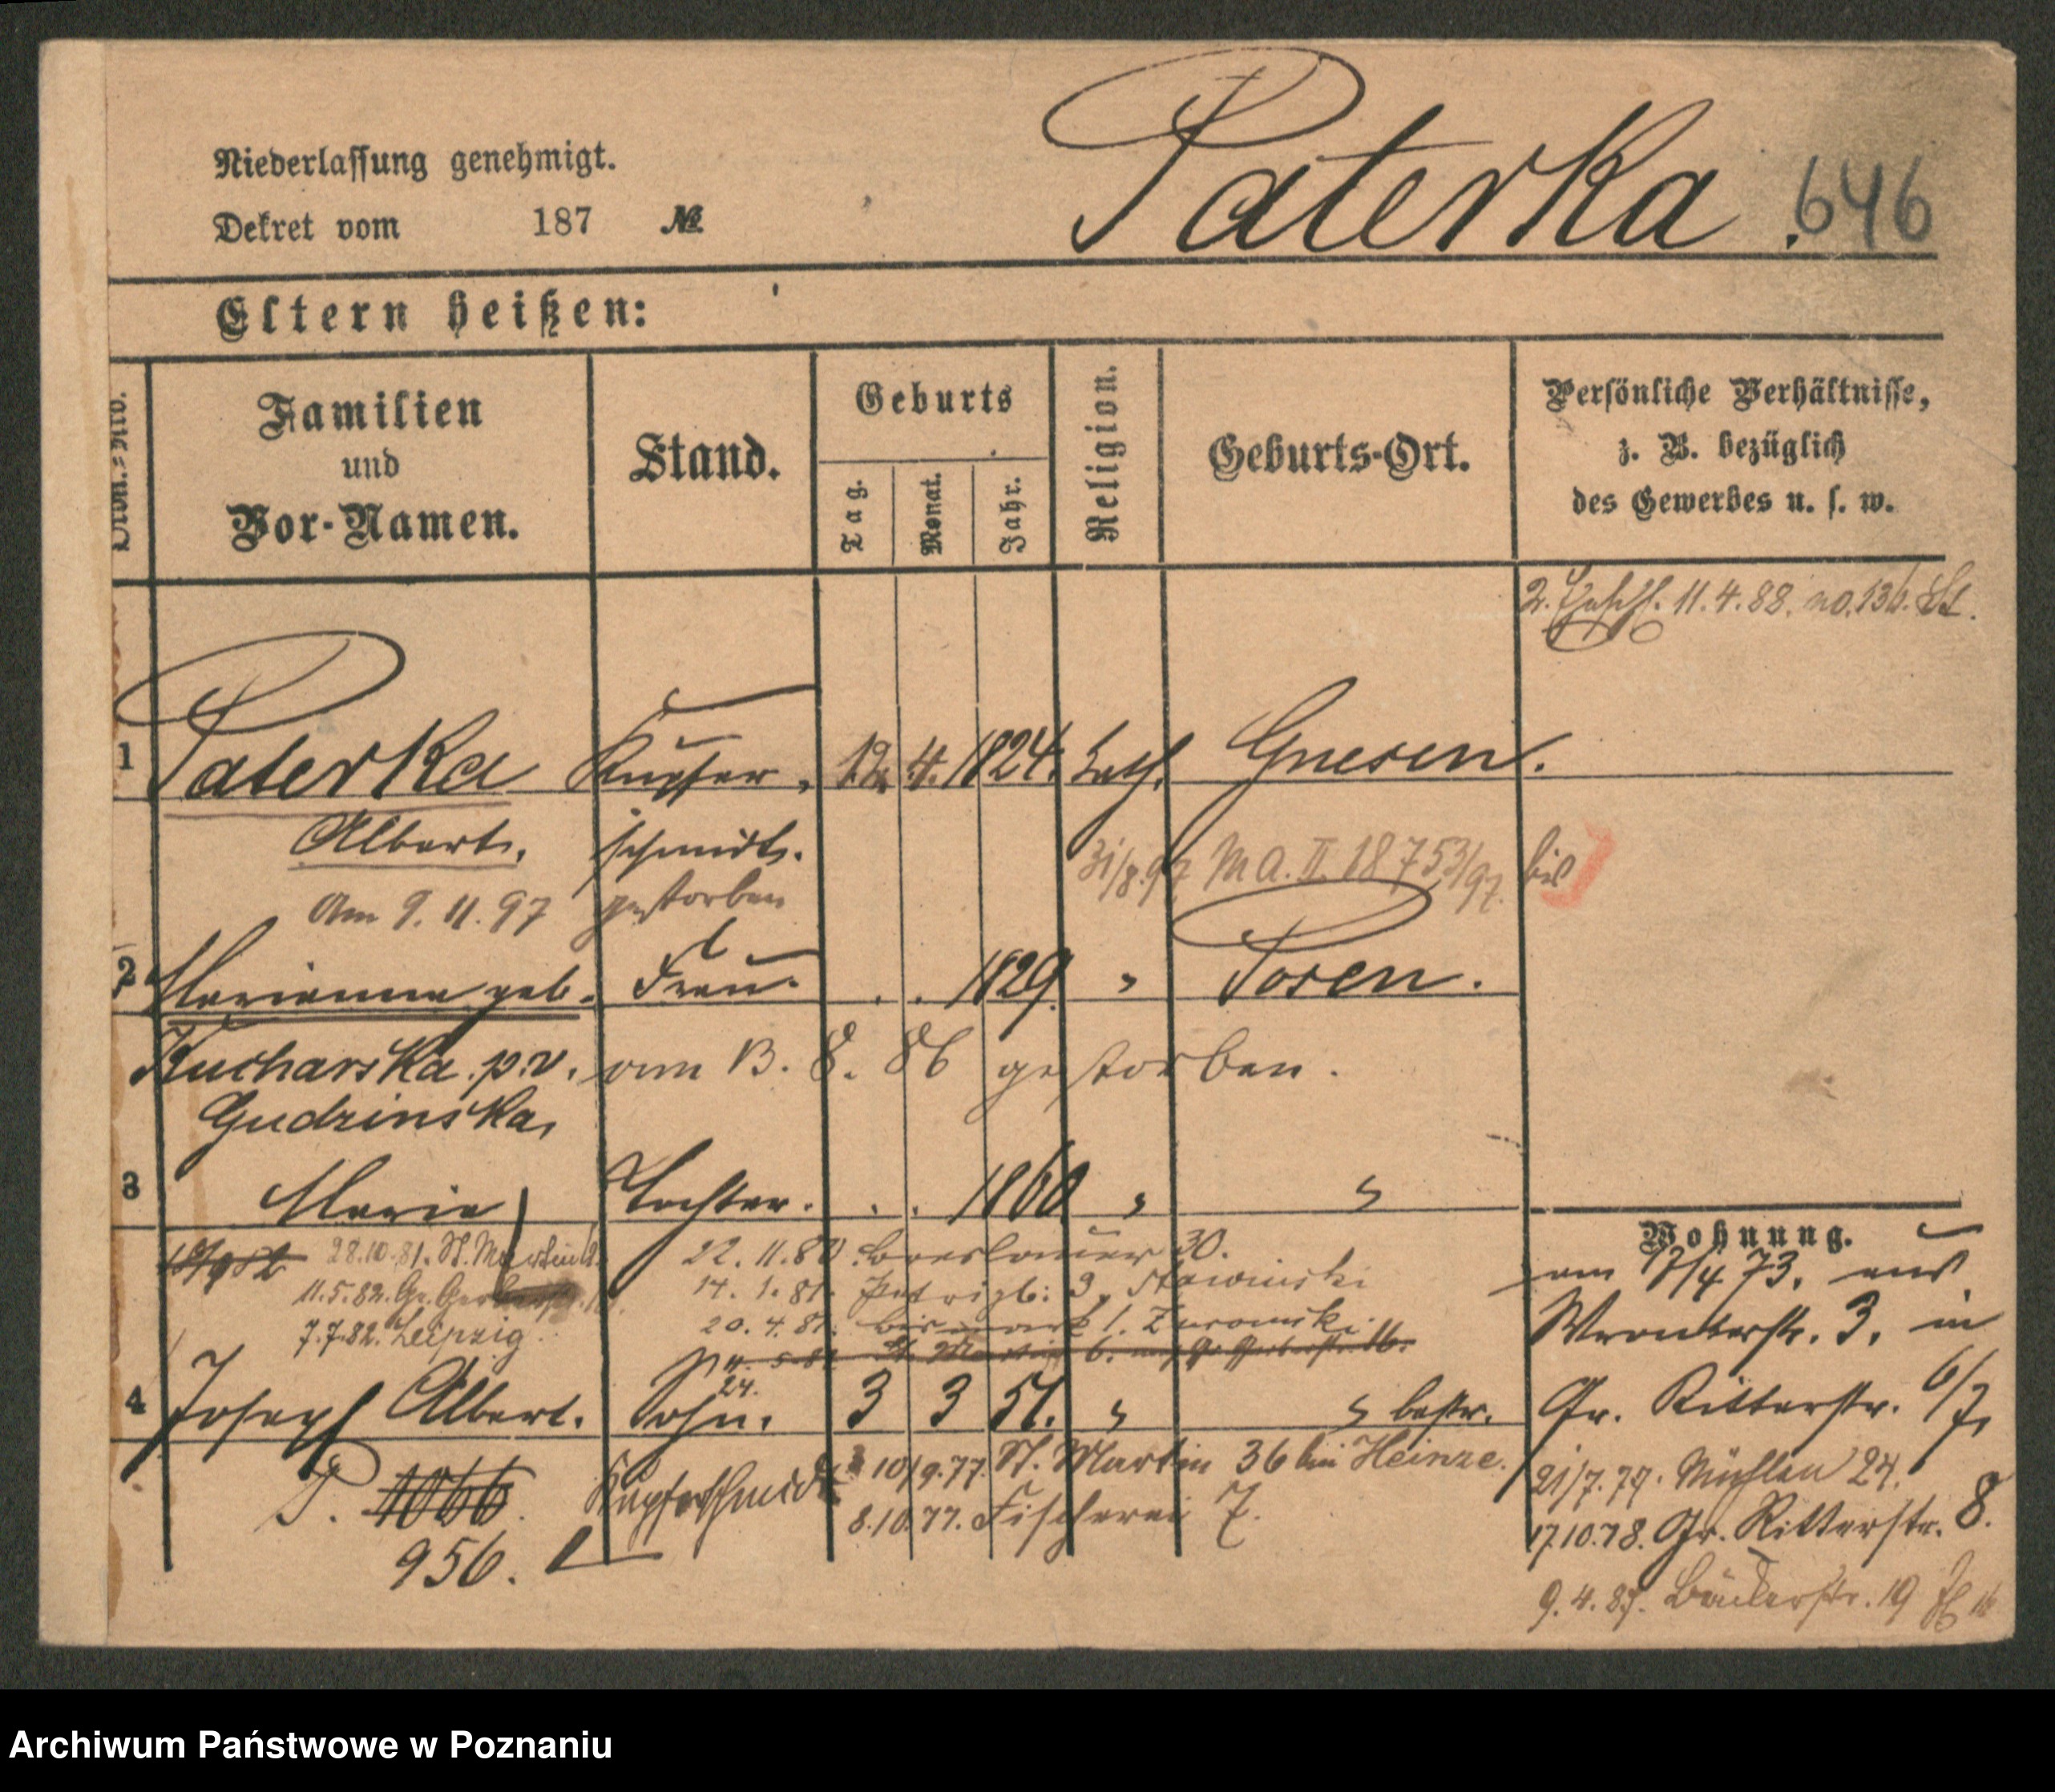 Paterka. 646
Niederlassung genehmigt.
Dekret vom 187 №
Eltern heißen:
Ordn.-Nro.
Familien
und
Vor-Namen.
Stand.
Geburts
Tag.
Monat.
Jahr.
Religion.
Geburts-Ort.
Persönliche Verhältnisse,
z. B. bezüglich
des Gewerbes u. s. w.
11.4.88. no. 136.
1 Paterka Kupfer, 12. 4. 1824. kath. Gnesen.
Albert, schmidt.
31/8.97 M A. II 18753/97. bis
Am 9. 11. 97 gestorben
2 Marianna geb. Frau. . . 1829. " Posen.
Kucharska p.v. am 13. 8. 86 gestorben.
Gudzinska,
3 Marie Tochter. . . 1860 " "
28.10.81. St. Martin 22. 11. 80. Breslauer 30.
11.5.82. Gr. Gerberstr. 14. 1. 81. Petripl. 3,
7.7.82. Leipzig. 20. 4. 81. Bismark 1.
4 Joseph Albert. Sohn. 3 3 51. " " bestr.
P. 1066. Kupferschmidt 10/9.77 St. Martin 36 bei Heinze.
8.10.77. Fischerei 7.
956.
Wohnung.
am 7/4 73. aus
Wronkerstr. 3. in
Gr. Ritterstr. 6/7,
21/7.77. Mühlen 24.
17.10.78. Gr. Ritterstr. 8.
9.4.87. Bäckerstr. 19
Archiwum Państwowe w Poznaniu